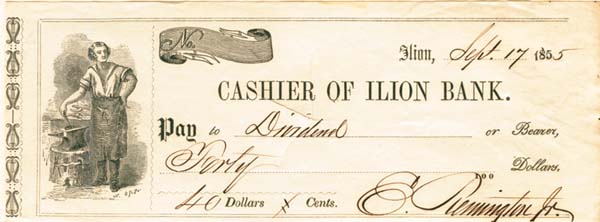 No.
Ilion, Sept. 17 1855
CASHIER OF ILION BANK.
Pay to Dividend or Bearer,
Forty 100 Dollars.
40 Dollars Cents. E. Remington Jr.